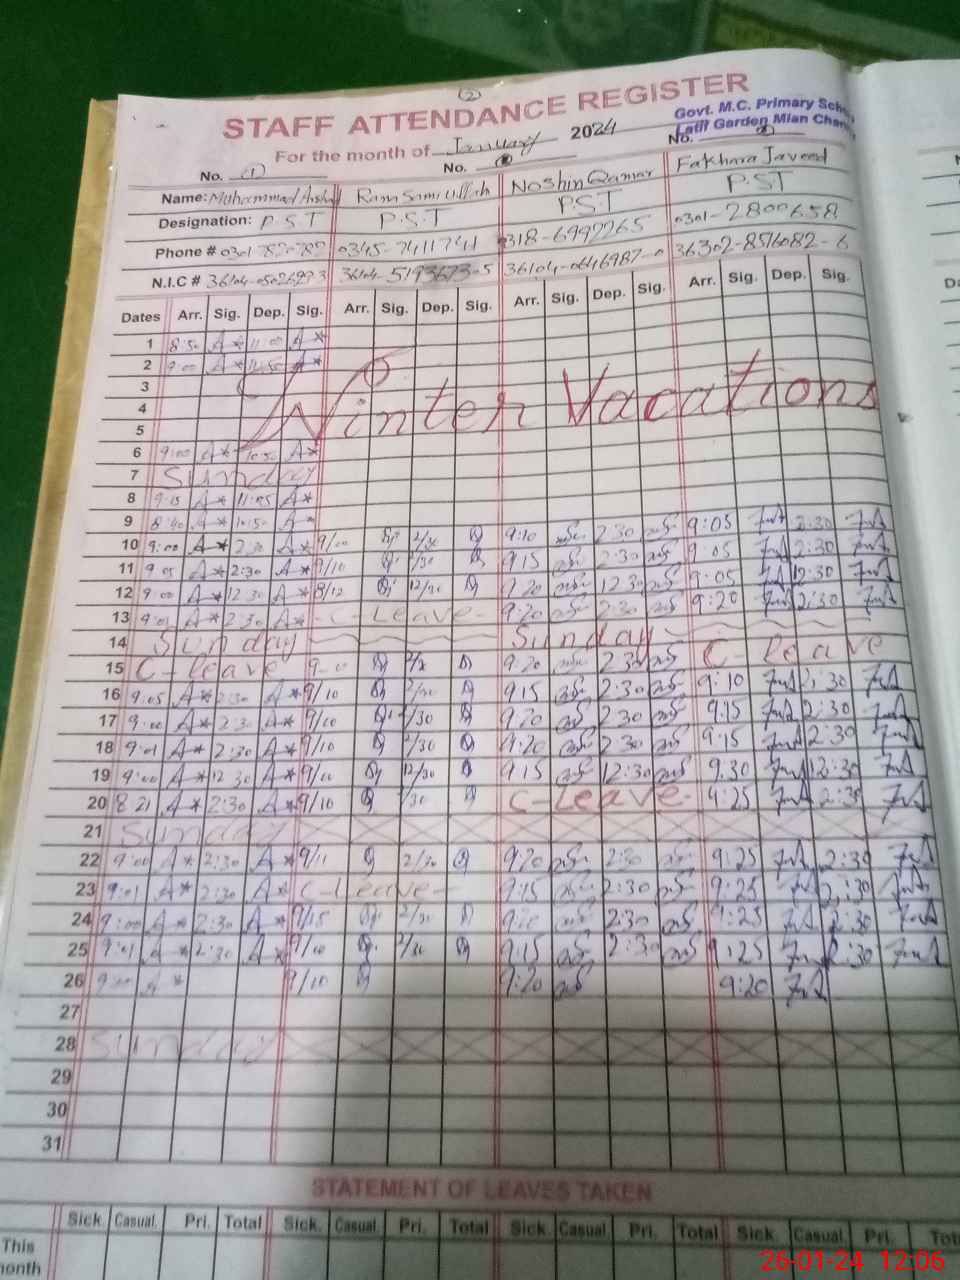 (2)
STAFF ATTENDANCE REGISTER
Govt. M.C. Primary Scho
Latif Garden Mian Chan
For the month of January 2024
No. (1) No. No.
Name: Muhammad Arshad Noshin Qamar Fakhara Javeed
Designation: P.S.T P.S.T P.S.T P.S.T
Phone # 0345-7411741 0318-6992265 0301-2800658
N.I.C # 36302-8516082-6
Dates Arr. Sig. Dep. Sig. Arr. Sig. Dep. Sig. Arr. Sig. Dep. Sig. Arr. Sig. Dep. Sig.
1 8:50 A* 11:00 A*
2 9:00 A* A*
3
Winter Vacations
4
5
6 9:00 A* 10:50 A*
7 Sunday
8 9:15 A* 11:05 A*
9 8:40 A* 10:50 A*
10 9:00 A* 2:30 A* 9/10 2/30 9:10 2:30 9:05 2:30
11 9:05 A* 2:30 A* 9/10 2/30 9:15 2:30 9:05 2:30
12 9:00 A* 12:30 A* 12/30 9:20 12:30 9:05 12:30
13 9:01 A* 2:30 A* C-Leave- 9:20 2:30 9:20 2:30
14 Sunday Sunday
15 C-leave 9:20 2:30 C-leave
16 9:05 A* 2:30 A* 9/10 2/30 9:15 2:30 9:10 2:30
17 9:00 A* 2:30 A* 9/10 2/30 9:20 2:30 9:15 2:30
18 9:01 A* 2:30 A* 9/10 2/30 9:20 2:30 9:15 2:30
19 9:00 A* 12:30 A* 9/10 12/30 9:15 12:30 9:30 12:30
20 8:21 A* 2:30 A* 9/10 2/30 C-Leave- 9:25 2:30
21 Sunday
22 9:00 A* 2:30 A* 9/11 2/30 9:20 2:30 9:25 2:30
23 9:01 A* 2:30 A* C-Leave- 9:15 2:30 9:25 2:30
24 9:00 A* 2:30 A* 9/15 2/30 2:30 9:25 2:30
25 9:01 A* 2:30 A* 9/10 2/30 9:15 2:30 9:25 2:30
26 9:00 A* 9/10 9:20 9:20
27
28 Sunday
29
30
31
STATEMENT OF LEAVES TAKEN
Sick Casual Pri. Total Sick. Casual Pri. Total Sick. Casual Pri. Total Sick. Casual Pri. Tot
This
month
26-01-24 12:06